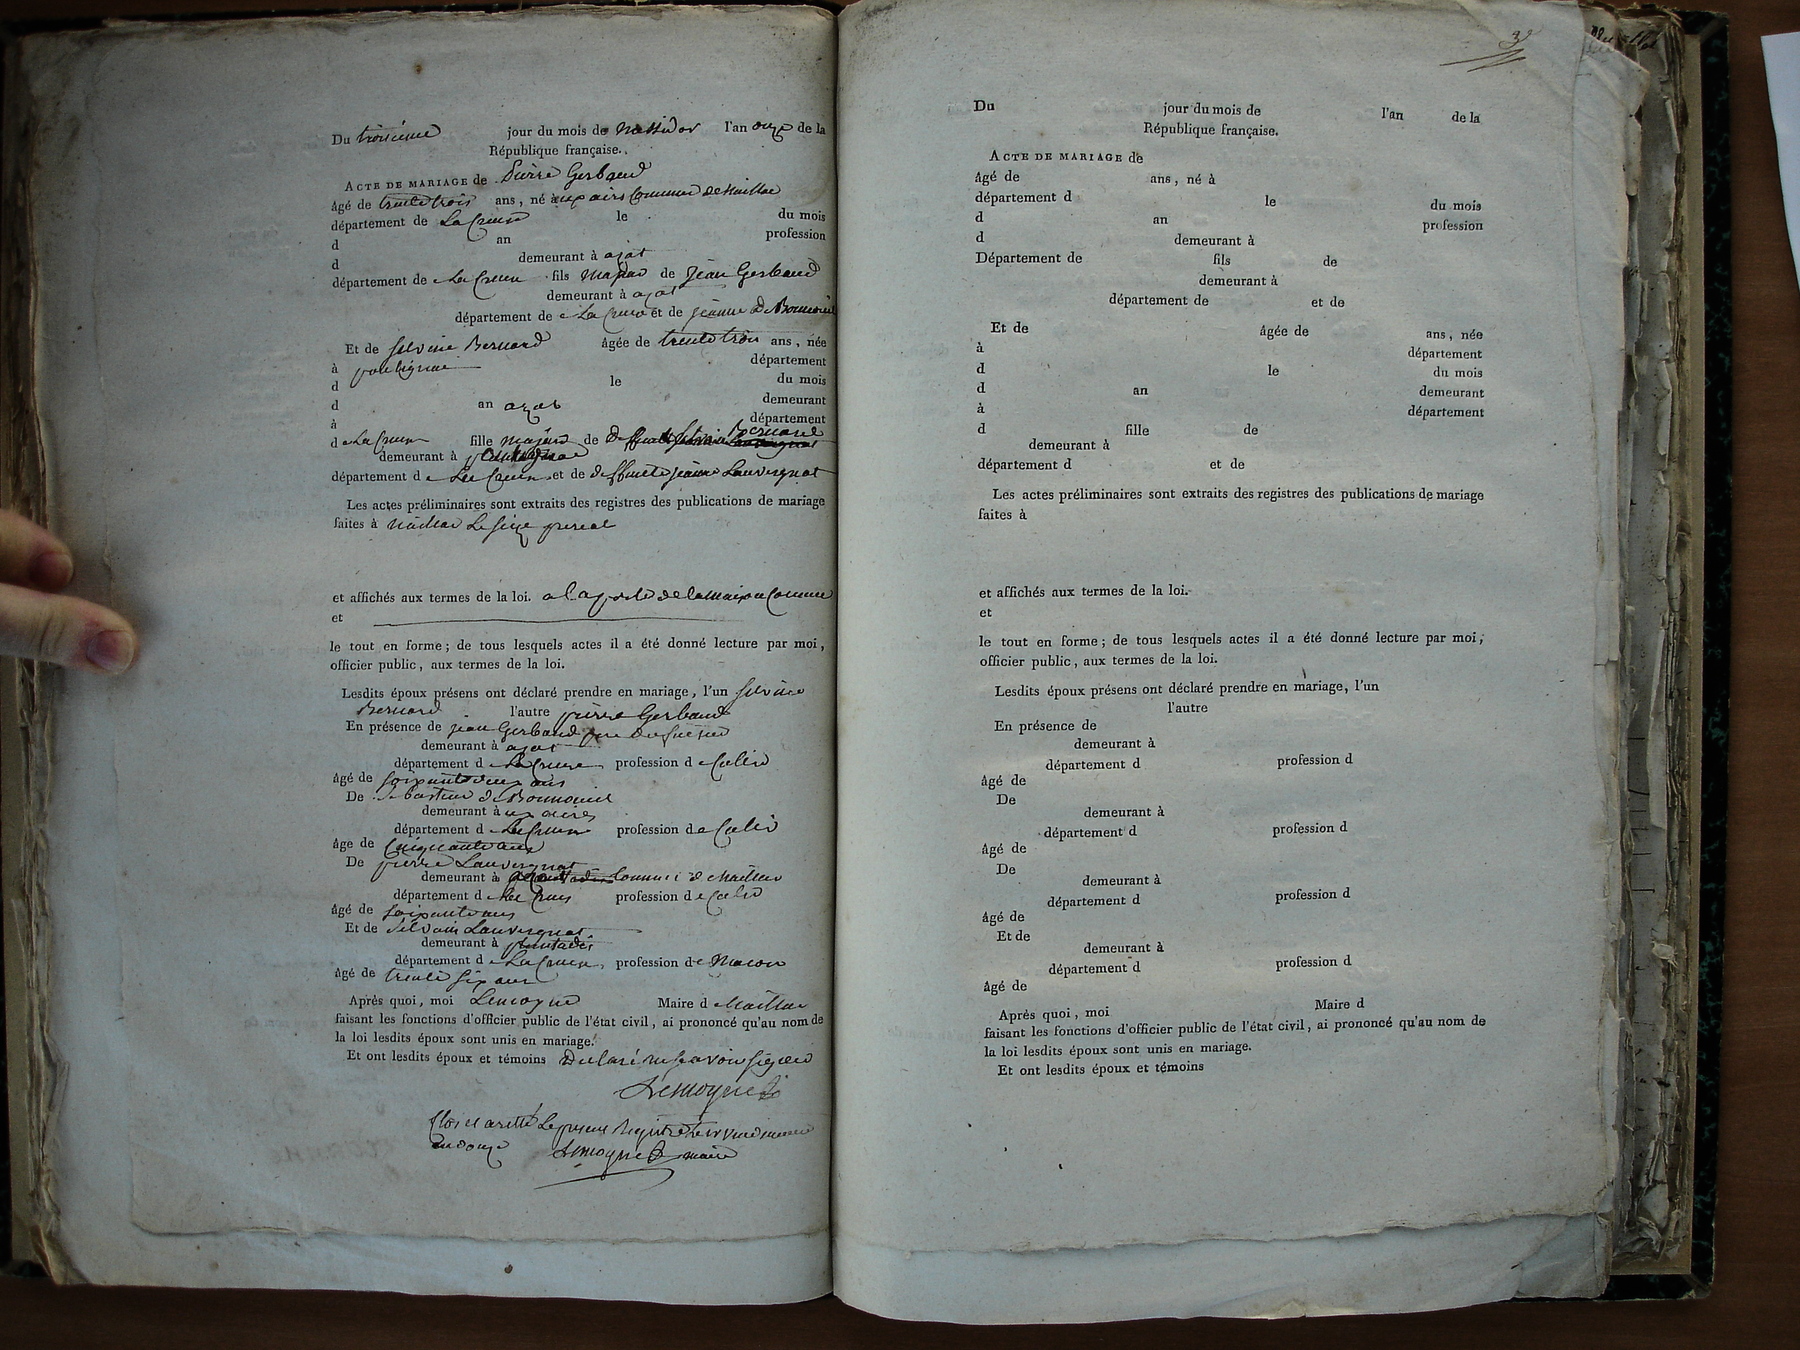 Du troisième jour du mois de Messidor l'an onze de la
République française.
ACTE DE MARIAGE de Pierre Gerbaud
âgé de trente trois ans, né aux aires Commune de Maillac
département de La Creuse le du mois
d an profession
d demeurant à azat
département de La Creuse fils Majeur de jean Gerbaud
demeurant à azat
département de La Creuse et de jeanne de Bonnoueil
Et de Silvine Bernard âgée de trente trois ans, née
à département
d le du mois
d an azat demeurant
à département
d La Creuse fille Majeur de Deffunt Silvain Bernard
demeurant à
département d La Creuse et de deffunte jeanne Lauvergnat
Les actes préliminaires sont extraits des registres des publications de mariage
faites à Maillac Le seize prereal
et affichés aux termes de la loi. a la porte de la Maison Commune
et
le tout en forme; de tous lesquels actes il a été donné lecture par moi,
officier public, aux termes de la loi.
Lesdits époux présens ont déclaré prendre en mariage, l'un Silvine
Bernard l'autre pierre Gerbaud
En présence de jean Gerbaud
demeurant à azat
département d La Creuse profession de Colis
âgé de soixante deux ans
De Sebastien de Bonnoueil
demeurant à ux aires
département d La Creuse profession de Colis
âge de Cinquante ans
De pierre Lauvergnat
demeurant à Commune de Maillac
département d La Creuse profession de Colis
âgé de soixante ans
Et de Silvain Lauvergnat
demeurant à plantadis
département d La Creuse profession de Macon
âgé de trente six ans
Après quoi, moi Lemoyne Maire d Maillac
faisant les fonctions d'officier public de l'état civil, ai prononcé qu'au nom de
la loi lesdits époux sont unis en mariage.
Et ont lesdits époux et témoins Declaré ne savoir signer
Lemoyne
Clos et aretté Le present Registre
an douze Lemoyne maire
3e
Du jour du mois de l'an de la
République française.
ACTE DE MARIAGE de
âgé de ans, né à
département d le du mois
d an profession
d demeurant à
Département de fils de
demeurant à
département de et de
Et de âgée de ans, née
à département
d le du mois
d an demeurant
à département
d fille de
demeurant à
département d et de
Les actes préliminaires sont extraits des registres des publications de mariage
faites à
et affichés aux termes de la loi.
et
le tout en forme; de tous lesquels actes il a été donné lecture par moi,
officier public, aux termes de la loi.
Lesdits époux présens ont déclaré prendre en mariage, l'un
l'autre
En présence de
demeurant à
département d profession d
âgé de
De
demeurant à
département d profession d
âgé de
De
demeurant à
département d profession d
âgé de
Et de
demeurant à
département d profession d
âgé de
Après quoi, moi Maire d
faisant les fonctions d'officier public de l'état civil, ai prononcé qu'au nom de
la loi lesdits époux sont unis en mariage.
Et ont lesdits époux et témoins